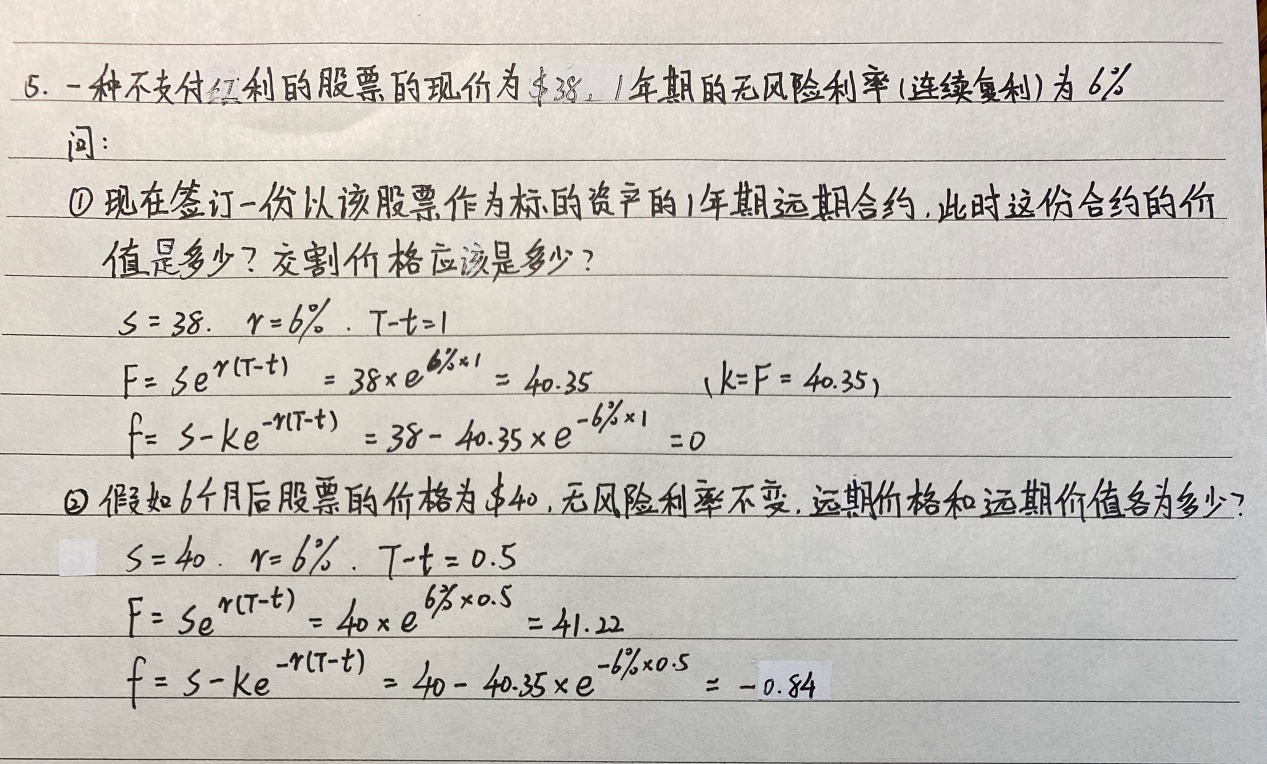 5. 一种不支付红利的股票的现价为$38. 1年期的无风险利率(连续复利)为6%
问:
① 现在签订一份以该股票作为标的资产的1年期远期合约.此时这份合约的价
值是多少?交割价格应该是多少?
S=38. r=6%. T-t=1
F= Se^{r(T-t)} = 38×e^{6%×1} = 40.35 (k=F=40.35)
f= S-ke^{-r(T-t)} = 38-40.35×e^{-6%×1} =0
② 假如6个月后股票的价格为$40.无风险利率不变.远期价格和远期价值各为多少?
S=40. r=6%. T-t=0.5
F= Se^{r(T-t)} = 40×e^{6%×0.5} = 41.22
f= S-ke^{-r(T-t)} = 40-40.35×e^{-6%×0.5} = -0.84